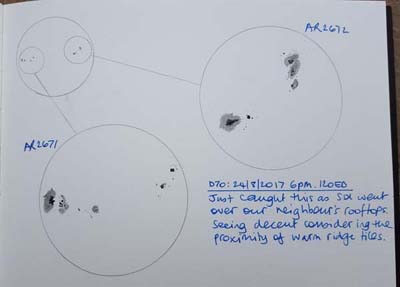 AR2672
AR2671
D70: 24/8/2017 6pm. 120ED
Just caught this as Sol went
over our neighbour's rooftops.
Seeing decent considering the
proximity of warm ridge tiles.